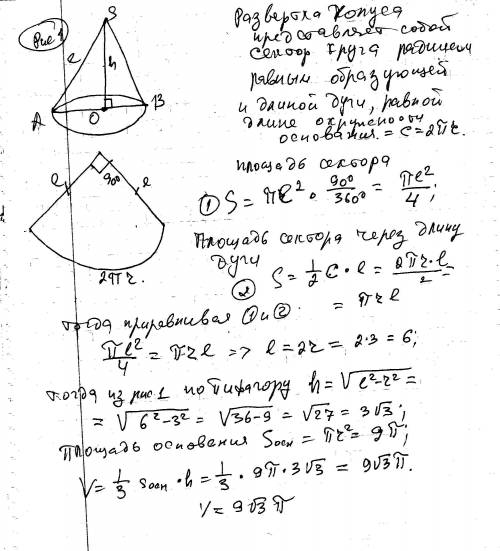 Рис 1
S
l
h
A
O
B
Развертка конуса
представляет собой
сектор круга радиусом
равным образующей
и длиной дуги, равной
длине окружности
основания. = C = 2πr.
l
90°
l
2πr.
площадь сектора
① S = πl² · 90°/360° = πl²/4;
Площадь сектора через длину
дуги
② S = 1/2 C · l = 2πr·l/2 =
= πrl
тогда приравнивая ① и ②
πl²/4 = πrl => l = 2r = 2·3 = 6;
тогда из рис. 1 по Пифагору h = √l²-r² =
= √6²-3² = √36-9 = √27 = 3√3;
Площадь основания Sосн = πr² = 9π;
V = 1/3 Sосн · h = 1/3 · 9π · 3√3 = 9√3π.
V = 9√3 π